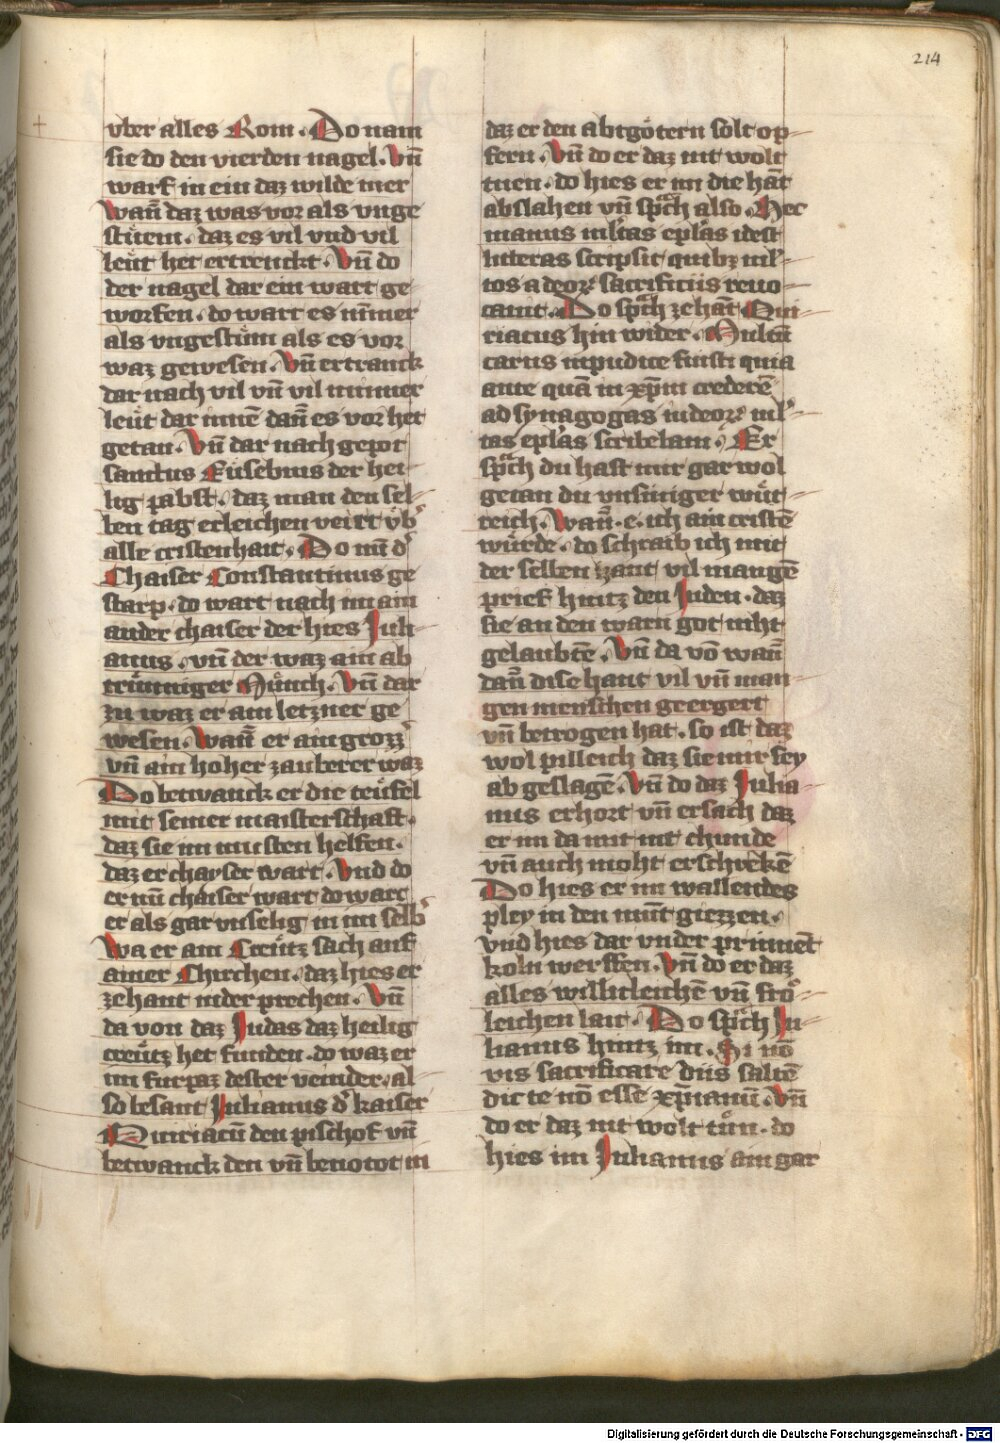 214
vber alles Rom. Do nam
sie do den vierden nagel. Vn̄
warf in ein daz wilde mer
Wan̄ daz was vor als vnge
stüem. daz es vil vnd vil
leüt het ertrenckt. Vn̄ do
der nagel dar ein wart ge
worfen. do wart es nȳmer
als vngestüm als es vor
waz gewesen. Vn̄ ertranck
dar nach vil vn̄ vil minner
leüt dar inne dan̄ es vor het
getan. Vn̄ dar nach gepot
sanctus Eusebius der hei-
lig pabst. daz man den sel-
ben tag erleichen veirt vb̾
alle cristenhait. Do nu d̾
Chaiser Constantinus ge
starp. do wart nach im ain
ander chaiser der hies Juli-
anus. vn̄ der waz ain ab
trünniger Münch. Vn̄ dar
zu waz er am letzner ge
wesen. Wan̄ er ain grozz̾
vn̄ ain hoher zauberer waz
Do betwanck er die teüfel
mit seiner maisterschaft.
daz sie im musten helfen.
daz er chayser wart. Vnd do
er nu chaiser wart do wart
er als gar vnselig in im selb̾
Wa er ain Creütz sach auf
ainer Chirchen. daz hies er
zehant nider prechen. Vn̄
da von daz Judas daz heilig
creütz het funden. do waz er
im furpaz dester veinder. al-
so besant Julianus d̾ kaiser
Quiriacū den pischof vn̄
betwanck den vn̄ benotot in
daz er den abtgötern solt op-
fern. Vn̄ do er daz nit wolt
tuen. do hies er im die hāt
abslahen vn̄ sprͣch also. Her
manus ml̾tas epl̾as idest
litteras scripsit quibꝫ ml̾-
tos a deoꝝ sacrificiis reuo-
cauit. Do sprͣch zehāt Qui-
riacus hin wider. Multū
carus inpudice fuisti quia
ante quā in xp̄m crederē
ad synagogas iudeoꝝ ml̾-
tas epl̾as scribebam. Er
sprͣch du hast mir gar wol
getan du vnsinniger wüt-
reich. Wan̄. e. ich ain cristē
würde. do schraib ich mit
der selben hant vil mangē
prief hintz den Juden. daz
sie an den warn got niht
gelaubtē. Vn̄ da vō wan̄
dan̄ dise hant vil vn̄ man-
gen menschen geergert
vn̄ betrogen hat. so ist daz
wol pilleich daz sie mir sey
ab geslagē. Vn̄ do daz Julia-
nus erhort vn̄ ersach daz
er im da mit nit chunde
vn̄ auch moht erschrekē
Do hies er im wallendes
pley in den mūt giezzen.
vnd hies dar vnder prinnēt
koln werffen. Vn̄ do er daz
alles willicleichē vn̄ frö-
leichen lait. Do sprͣch Ju-
lianus hintz im. Si nō
vis sacrificare diis saltē
dic te nō esse xp̄ianū. Vn̄
do er daz nit wolt tün. do
hies im Julianus ain gar
Digitalisierung gefördert durch die Deutsche Forschungsgemeinschaft - DFG